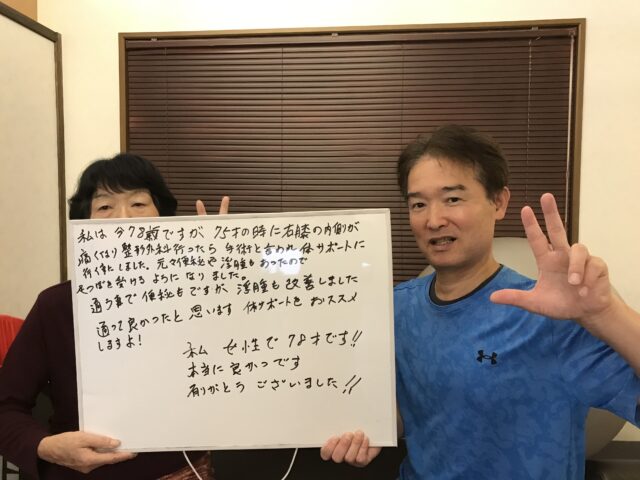 私は今78歳ですが 75才の時に右膝の内側が
痛くなり整形外科行ったら 手術と言われ 体サポートに
行く事にしました。元々便秘や浮腫もあったので
足つぼを受けるようになりました。
通う事で便秘もですが 浮腫も改善しました
通って良かったと思います 体サポートをおススメ
しますよ!
私 女性で78才です!!
本当に良かったです
有りがとうございました!!